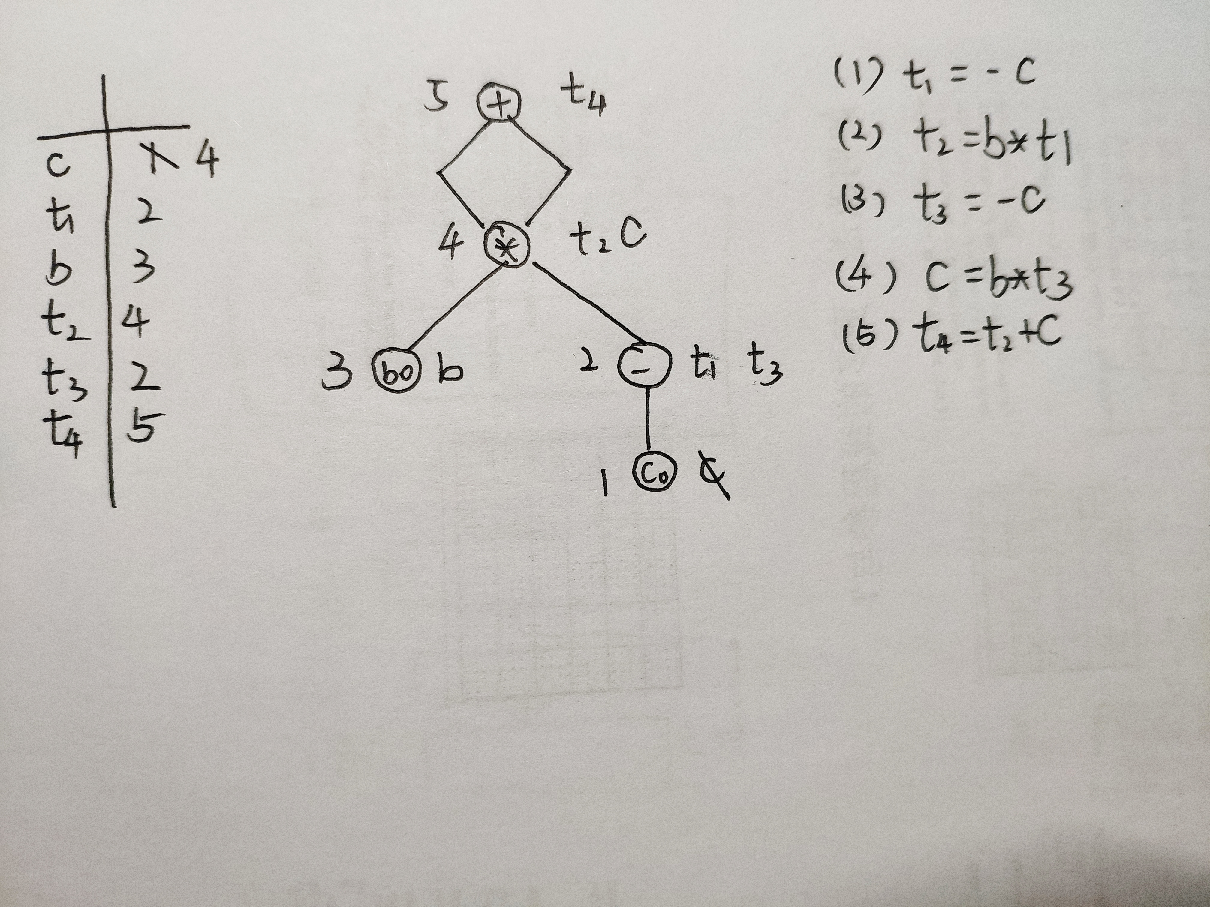 c 1 4
t₁ 2
b 3
t₂ 4
t₃ 2
t₄ 5
5 + t₄
4 * t₂ C
3 b₀ b
2 - t₁ t₃
1 C₀ c
(1) t₁ = - C
(2) t₂=b*t1
(3) t₃ = -C
(4) C =b*t₃
(5) t₄=t₂+C